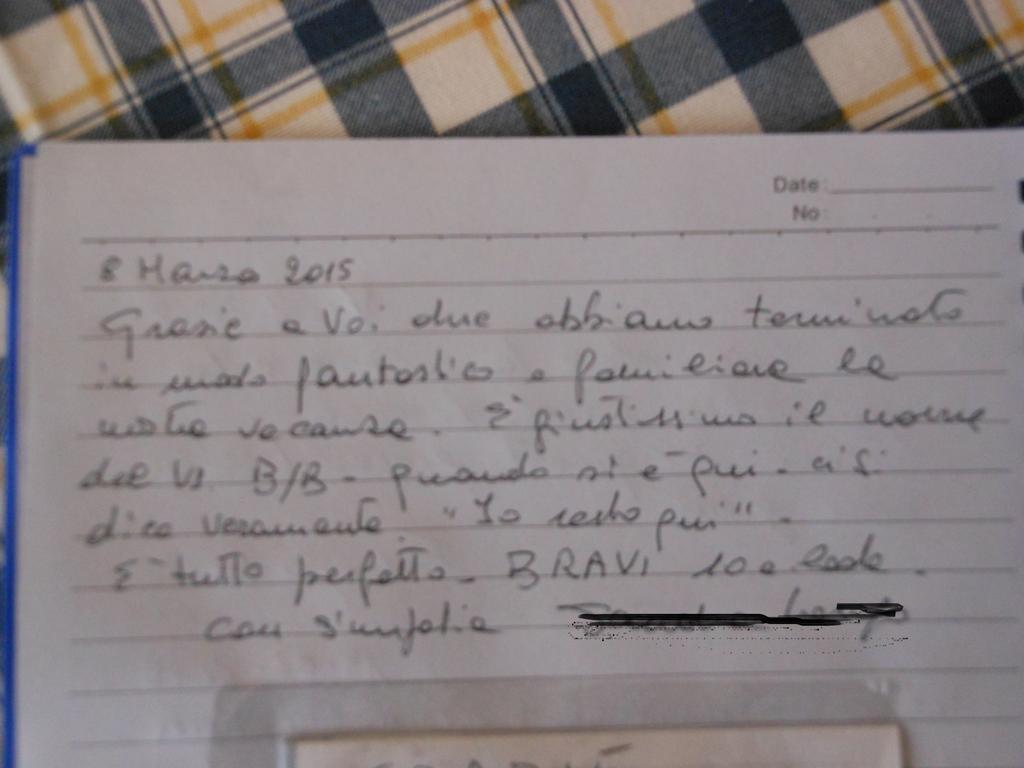 Date:
No:
8 Marzo 2015
Grazie a Voi due abbiamo terminato
in modo fantastico e familiare la
nostra vacanza. E' giustissimo il nome
del Vs B/B - quando si è qui - ci si
dice veramente "Io resto qui" -
E' tutto perfetto - BRAVI 10 e lode.
con simpatia